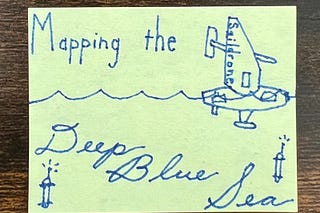 Mapping the
Saildrone
Deep
Blue
Sea